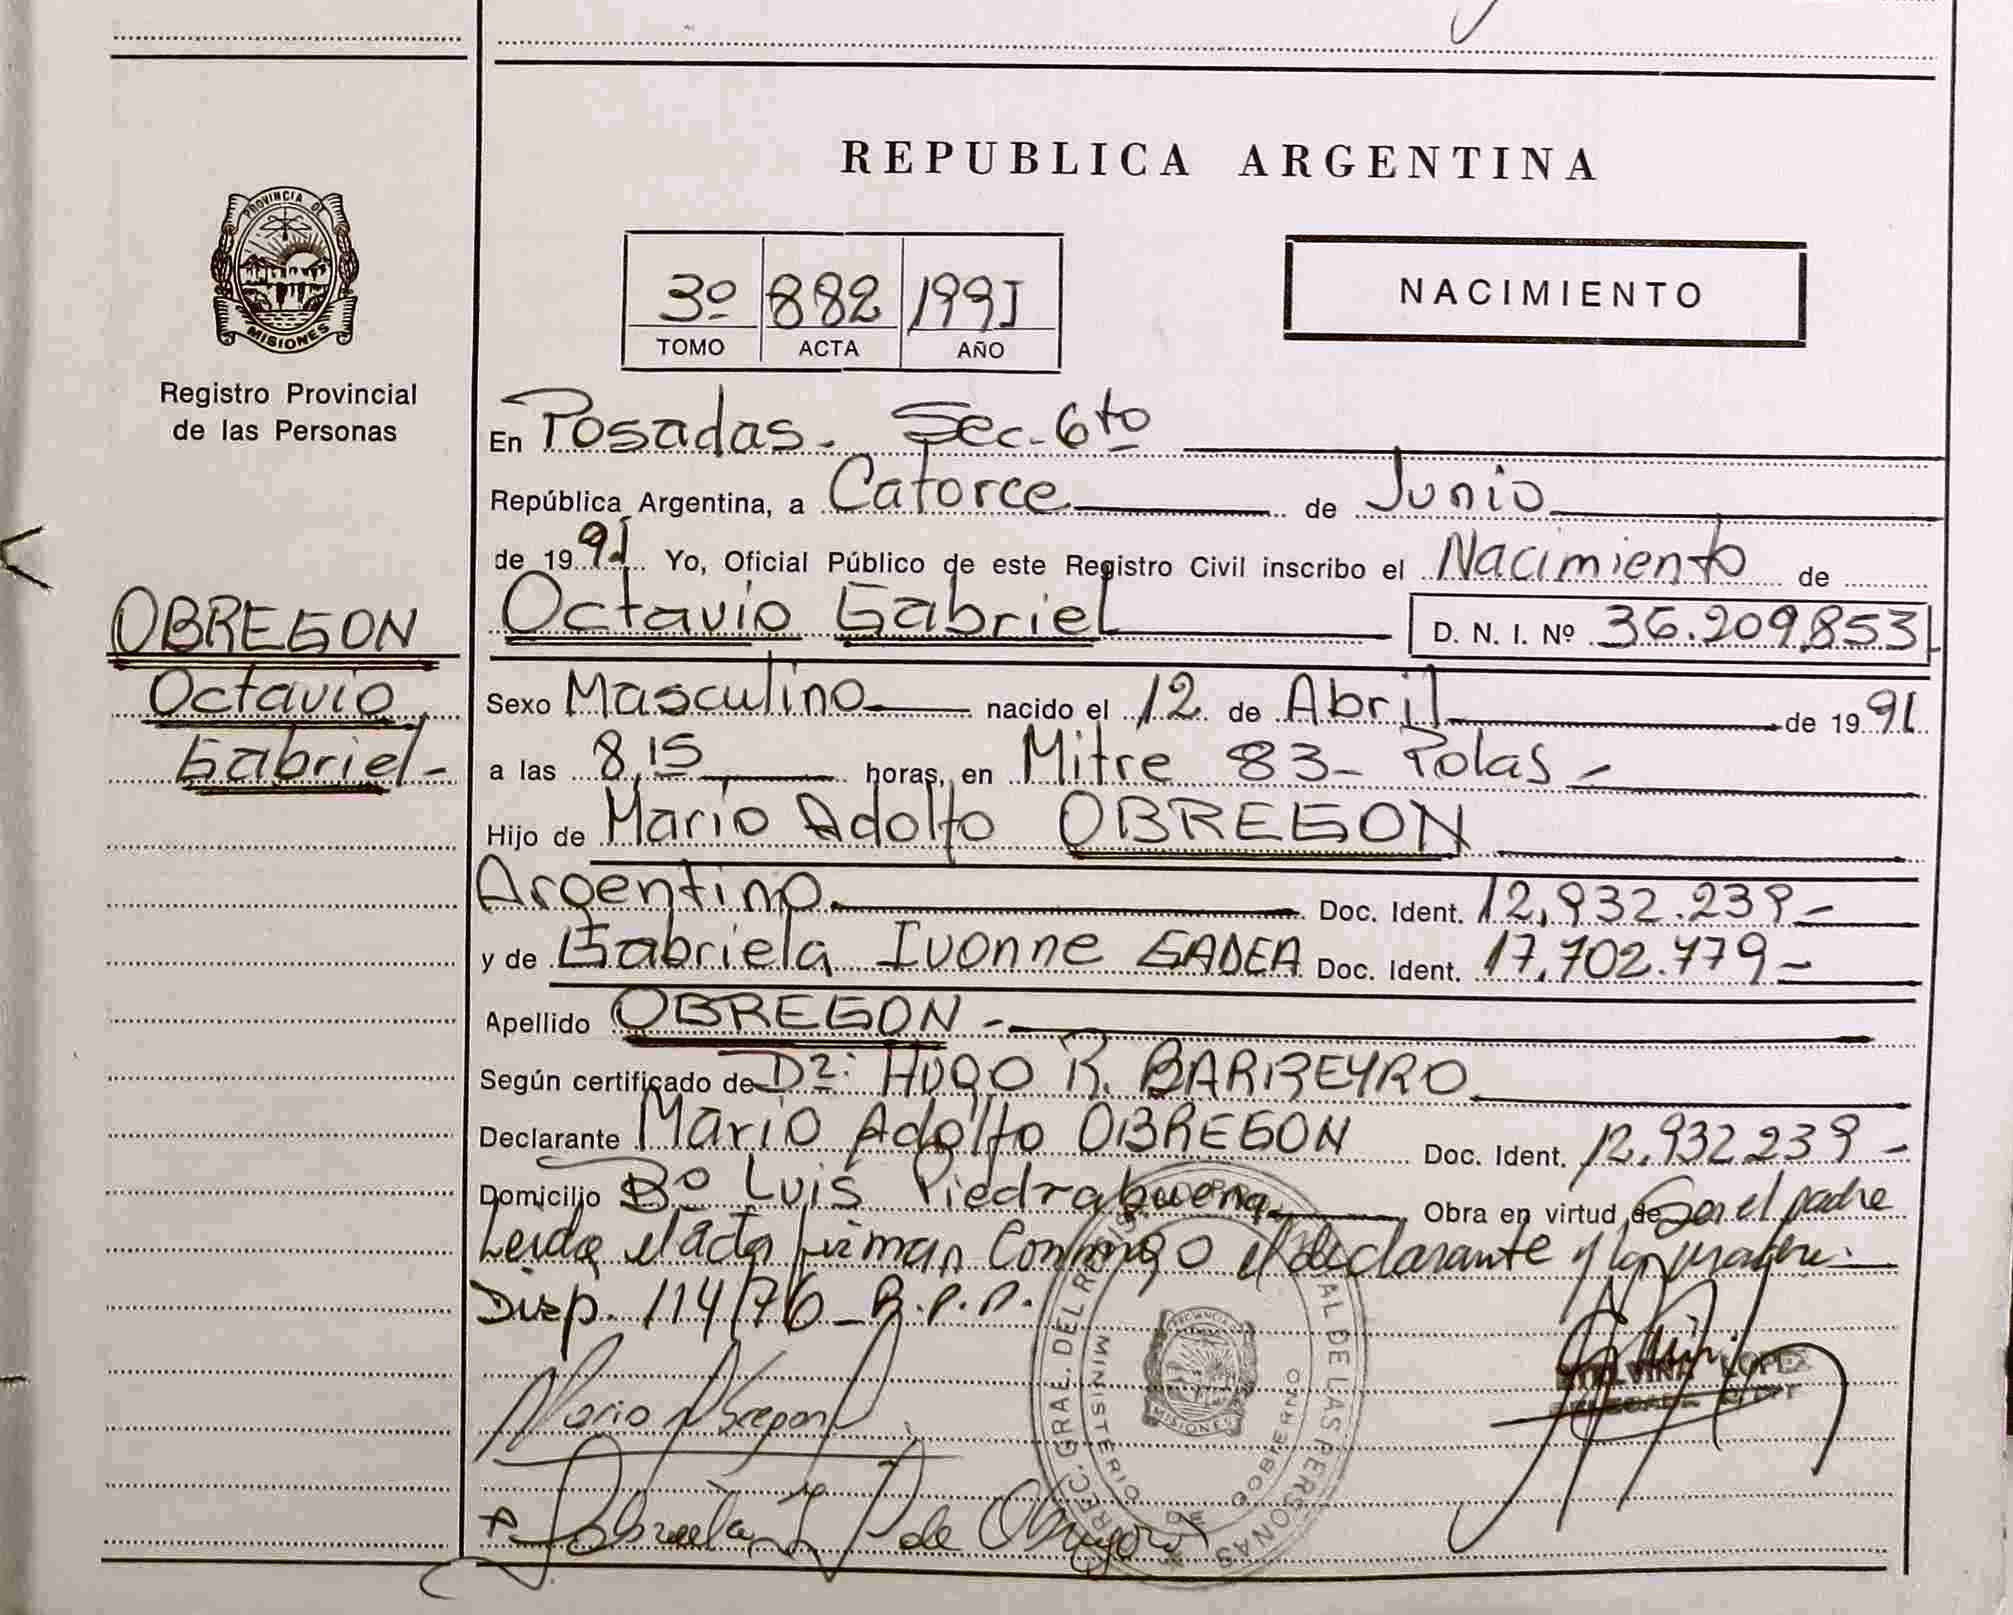 PROVINCIA DE
MISIONES
Registro Provincial
de las Personas
OBREGON
Octavio
Gabriel-
REPUBLICA ARGENTINA
3º 882 1991
TOMO ACTA AÑO
NACIMIENTO
En Posadas. Sec. 6to
República Argentina, a Catorce de Junio
de 1991 Yo, Oficial Público de este Registro Civil inscribo el Nacimiento de
Octavio Gabriel D. N. I. Nº 36.209.853
Sexo Masculino nacido el 12 de Abril de 1991.
a las 8,15 horas, en Mitre 83- Pdas-
Hijo de Mario Adolfo OBREGON
Argentino Doc. Ident. 12.932.239-
y de Gabriela Ivonne GADEA Doc. Ident. 17.702.779-
Apellido OBREGON-
Según certificado de Dr: HUGO R. BARREYRO
Declarante Mario Adolfo OBREGON Doc. Ident. 12.932.239-
Domicilio Bº Luis Piedrabuena Obra en virtud de Ser el padre
Leida el acta firman conmigo el declarante y la madre.
Disp. 114/76-R.P.P.
Mario Obregon
LOPEZ
Gabriela de Obregon
MINISTERIO DE GOBIERNO
PROVINCIA
MISIONES